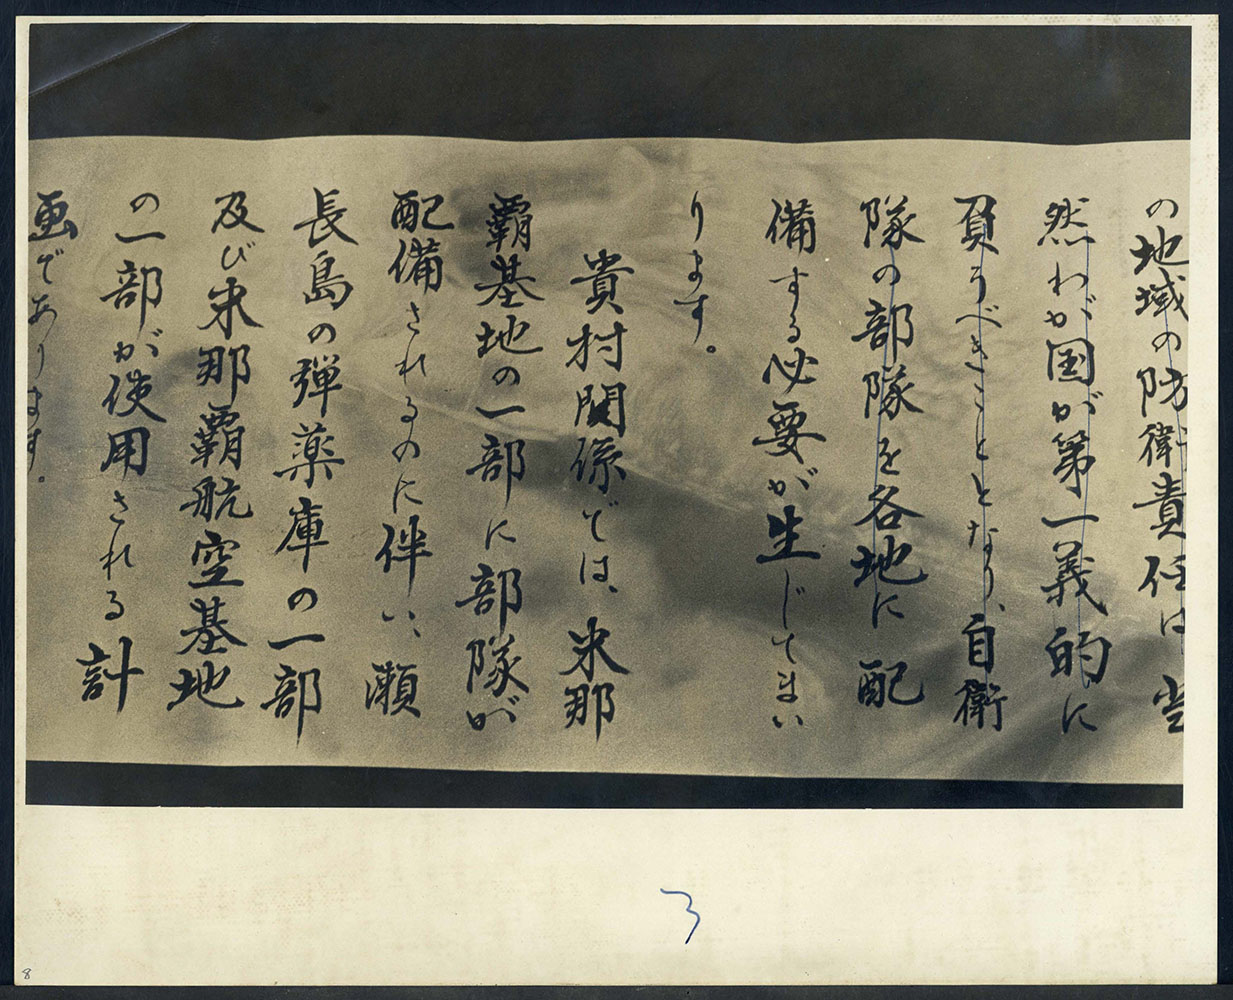 の地域の防衛責任は当
然わが国が第一義的に
負うべきこととなり、自衛
隊の部隊を各地に配
備する必要が生じてまい
ります。
貴村関係では、米那
覇基地の一部に部隊が
配備されるのに伴い、瀬
長島の弾薬庫の一部
及び米那覇航空基地
の一部が使用される計
画であります。
3
8